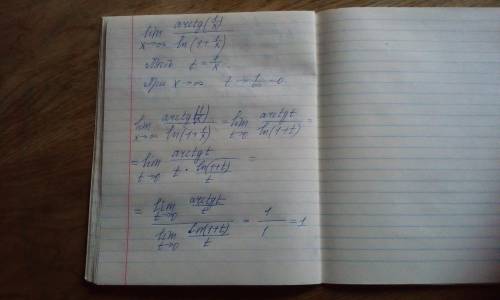 lim x→∞ arctg(1/x) / ln(1+1/x)
t = 1/x.
При x→∞ t → 1/∞ = 0
lim x→∞ arctg(1/x) / ln(1+1/x) = lim t→0 arctgt / ln(1+t) =
= lim t→0 arctgt / (t · ln(1+t)/t) =
= lim t→0 arctgt/t / lim t→0 ln(1+t)/t = 1/1 = 1